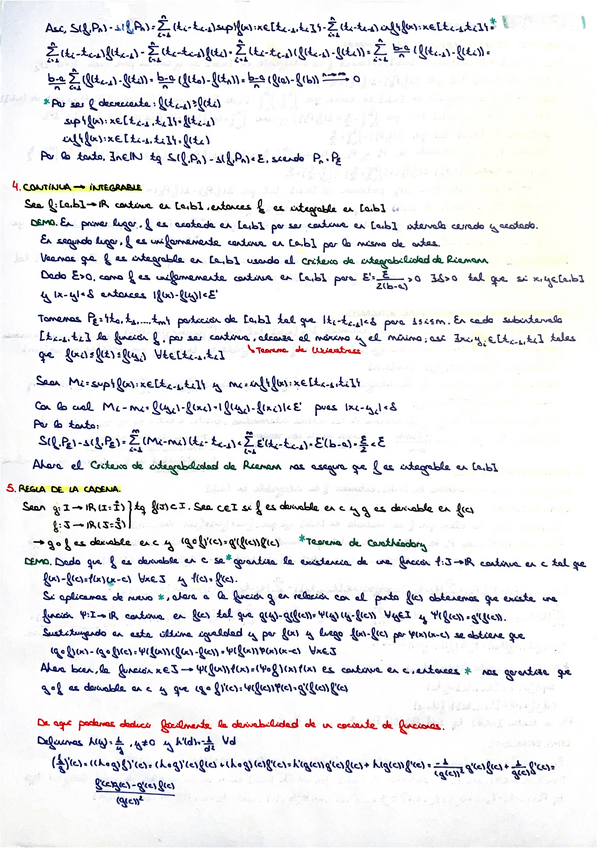 Así, S(f,Pn) - s(f,Pn) = Σ(ti-ti-1)sup{f(x): x∈[ti-1,ti]} - Σ(ti-ti-1)inf{f(x): x∈[ti-1,ti]} =*
Σ(ti-ti-1)f(ti-1) - Σ(ti-ti-1)f(ti) = Σ(ti-ti-1)(f(ti-1)-f(ti)) = Σ b-a/n (f(ti-1)-f(ti)) =
b-a/n Σ(f(ti-1)-f(ti)) = b-a/n (f(t0)-f(tn)) = b-a/n (f(a)-f(b)) n→∞ → 0
*Por ser f decreciente: f(ti-1)≥f(ti)
sup{f(x): x∈[ti-1,ti]} = f(ti-1)
inf{f(x): x∈[ti-1,ti]} = f(ti)
Por lo tanto, ∃n∈ℕ tq S(f,Pn) - s(f,Pn) < ε, siendo Pn = Pε
4. CONTINUA → INTEGRABLE
Sea f: [a,b] → ℝ continua en [a,b], entonces f es integrable en [a,b]
DEMO. En primer lugar, f es acotada en [a,b] por ser continua en [a,b] intervalo cerrado y acotado.
En segundo lugar, f es uniformemente continua en [a,b] por lo mismo de antes.
Veamos que f es integrable en [a,b] usando el Criterio de integrabilidad de Riemann
Dado ε>0, como f es uniformemente continua en [a,b] para ε' = ε/2(b-a) >0 ∃δ>0 tal que si x,y∈[a,b]
y |x-y|<δ entonces |f(x)-f(y)|<ε'
Tomemos Pε = {t0, t1, ..., tm} partición de [a,b] tal que |ti-ti-1|<δ para 1≤i≤m. En cada subintervalo
[ti-1, ti] la función f, por ser continua, alcanza el máximo y el mínimo; así ∃xi,yi∈[ti-1,ti] tales
que f(xi)≤f(t)≤f(yi) ∀t∈[ti-1,ti] ↳ Teorema de Weierstrass
Sean Mi = sup{f(x): x∈[ti-1,ti]} y mi = inf{f(x): x∈[ti-1,ti]}
Con lo cual Mi-mi = f(yi)-f(xi) = |f(yi)-f(xi)|<ε' pues |xi-yi|<δ
Por lo tanto:
S(f,Pε)-s(f,Pε) = Σ(Mi-mi)(ti-ti-1) < Σε'(ti-ti-1) = ε'(b-a) = ε/2 < ε
Ahora el Criterio de integrabilidad de Riemann nos asegura que f es integrable en [a,b]
5. REGLA DE LA CADENA.
Sean g: I → ℝ (I=Ī) } tq f(J)⊂I. Sea c∈I si f es derivable en c y g es derivable en f(c)
f: J → ℝ (J=J̄)
→ g∘f es derivable en c y (g∘f)'(c) = g'(f(c))f'(c) *Teorema de Carathéodory
DEMO. Dado que f es derivable en c se* garantiza la existencia de una función φ: J→ℝ continua en c tal que
f(x)-f(c)=φ(x)(x-c) ∀x∈J y φ(c)=f'(c).
Si aplicamos de nuevo *, ahora a la función g en relación con el punto f(c) obtenemos que existe una
función Ψ: I→ℝ continua en f(c) tal que g(y)-g(f(c))=Ψ(y)(y-f(c)) ∀y∈I y Ψ(f(c))=g'(f(c)).
Sustituyendo en esta última igualdad y por f(x) y luego f(x)-f(c) por φ(x)(x-c) se obtiene que
(g∘f)(x)-(g∘f)(c)=Ψ(f(x))(f(x)-f(c))=Ψ(f(x))φ(x)(x-c) ∀x∈J
Ahora bien, la función x∈J → Ψ(f(x))φ(x)=(Ψ∘f)(x)φ(x) es continua en c, entonces * nos garantiza que
g∘f es derivable en c y que (g∘f)'(c)=Ψ(f(c))φ(c)=g'(f(c))f'(c)
De aquí podemos deducir fácilmente la derivabilidad de un cociente de funciones.
Definimos h(y)=1/y, y≠0 y h'(d)=-1/d² ∀d
(f/g)'(c)=((h∘g)f)'(c)=(h∘g)'(c)f(c)+(h∘g)(c)f'(c)=h'(g(c))g'(c)f(c)+h(g(c))f'(c)=-1/(g(c))² g'(c)f(c)+1/g(c) f'(c)=
f'(c)g(c)-g'(c)f(c)/(g(c))²